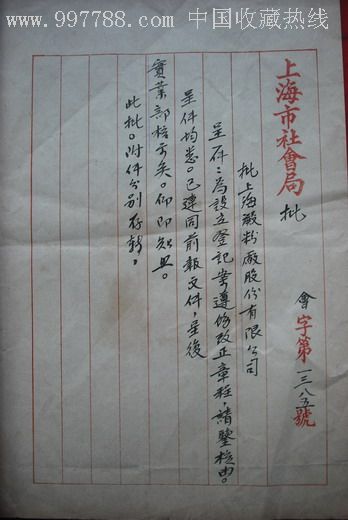 www.997788.com 中国收藏热线
上海市社會局 批
會字第一三八五號
批上海澱粉廠股份有限公司
呈一件：為設立登記案遵修改正章程，請鑒核由。
呈件均悉。已連同前報文件，呈復
實業部核示矣。仰即知照。
此批。附件分别存轉。